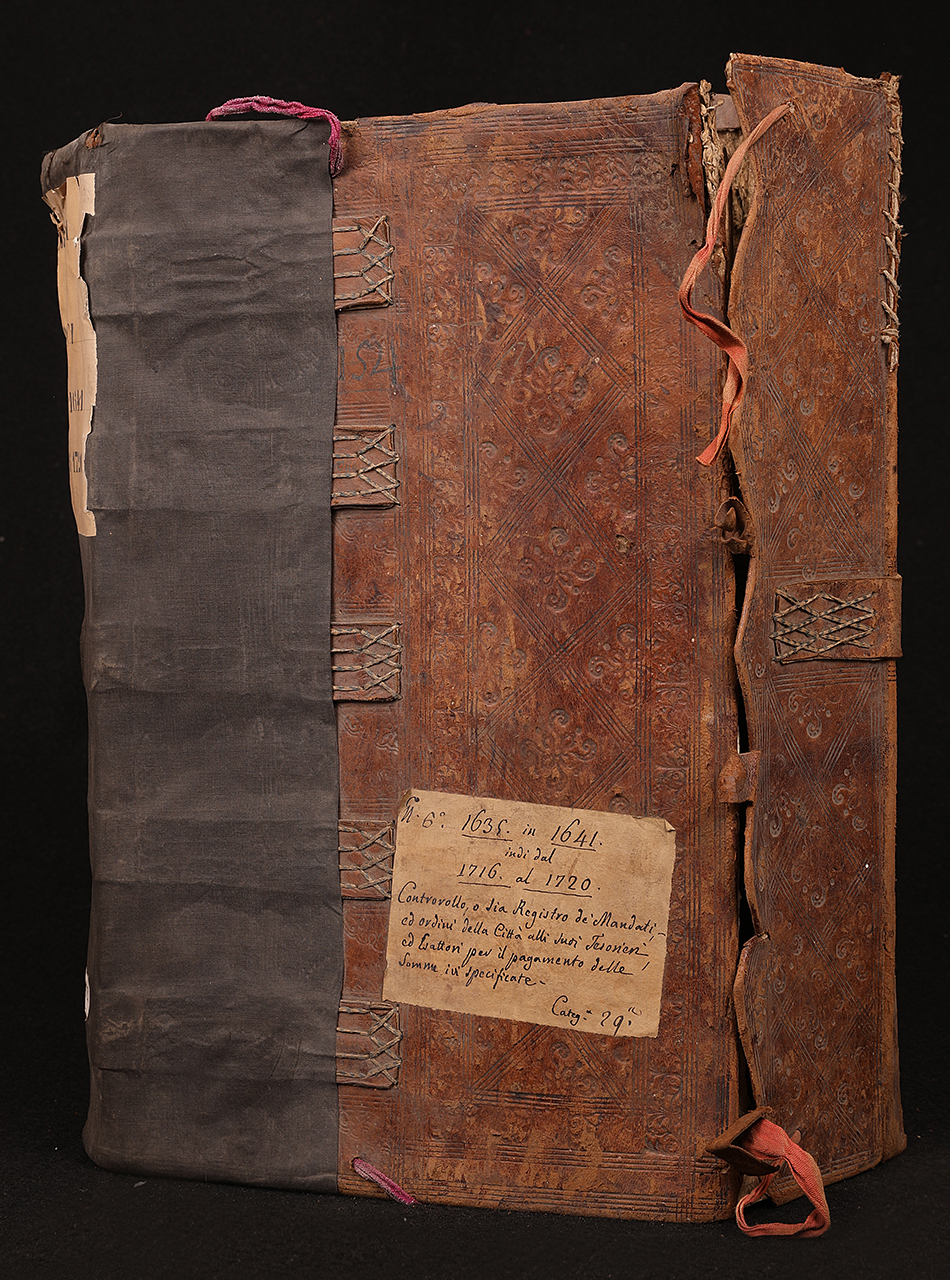 N. 6º. 1635. in 1641.
indi dal
1716. al 1720.
Controrollo, o sia Registro de' Mandati,
ed ordini della Città alli suoi Tesorieri
ed Esattori per il pagamento delle
somme ivi specificate -
Categ.ª 29.ª
1641
1720